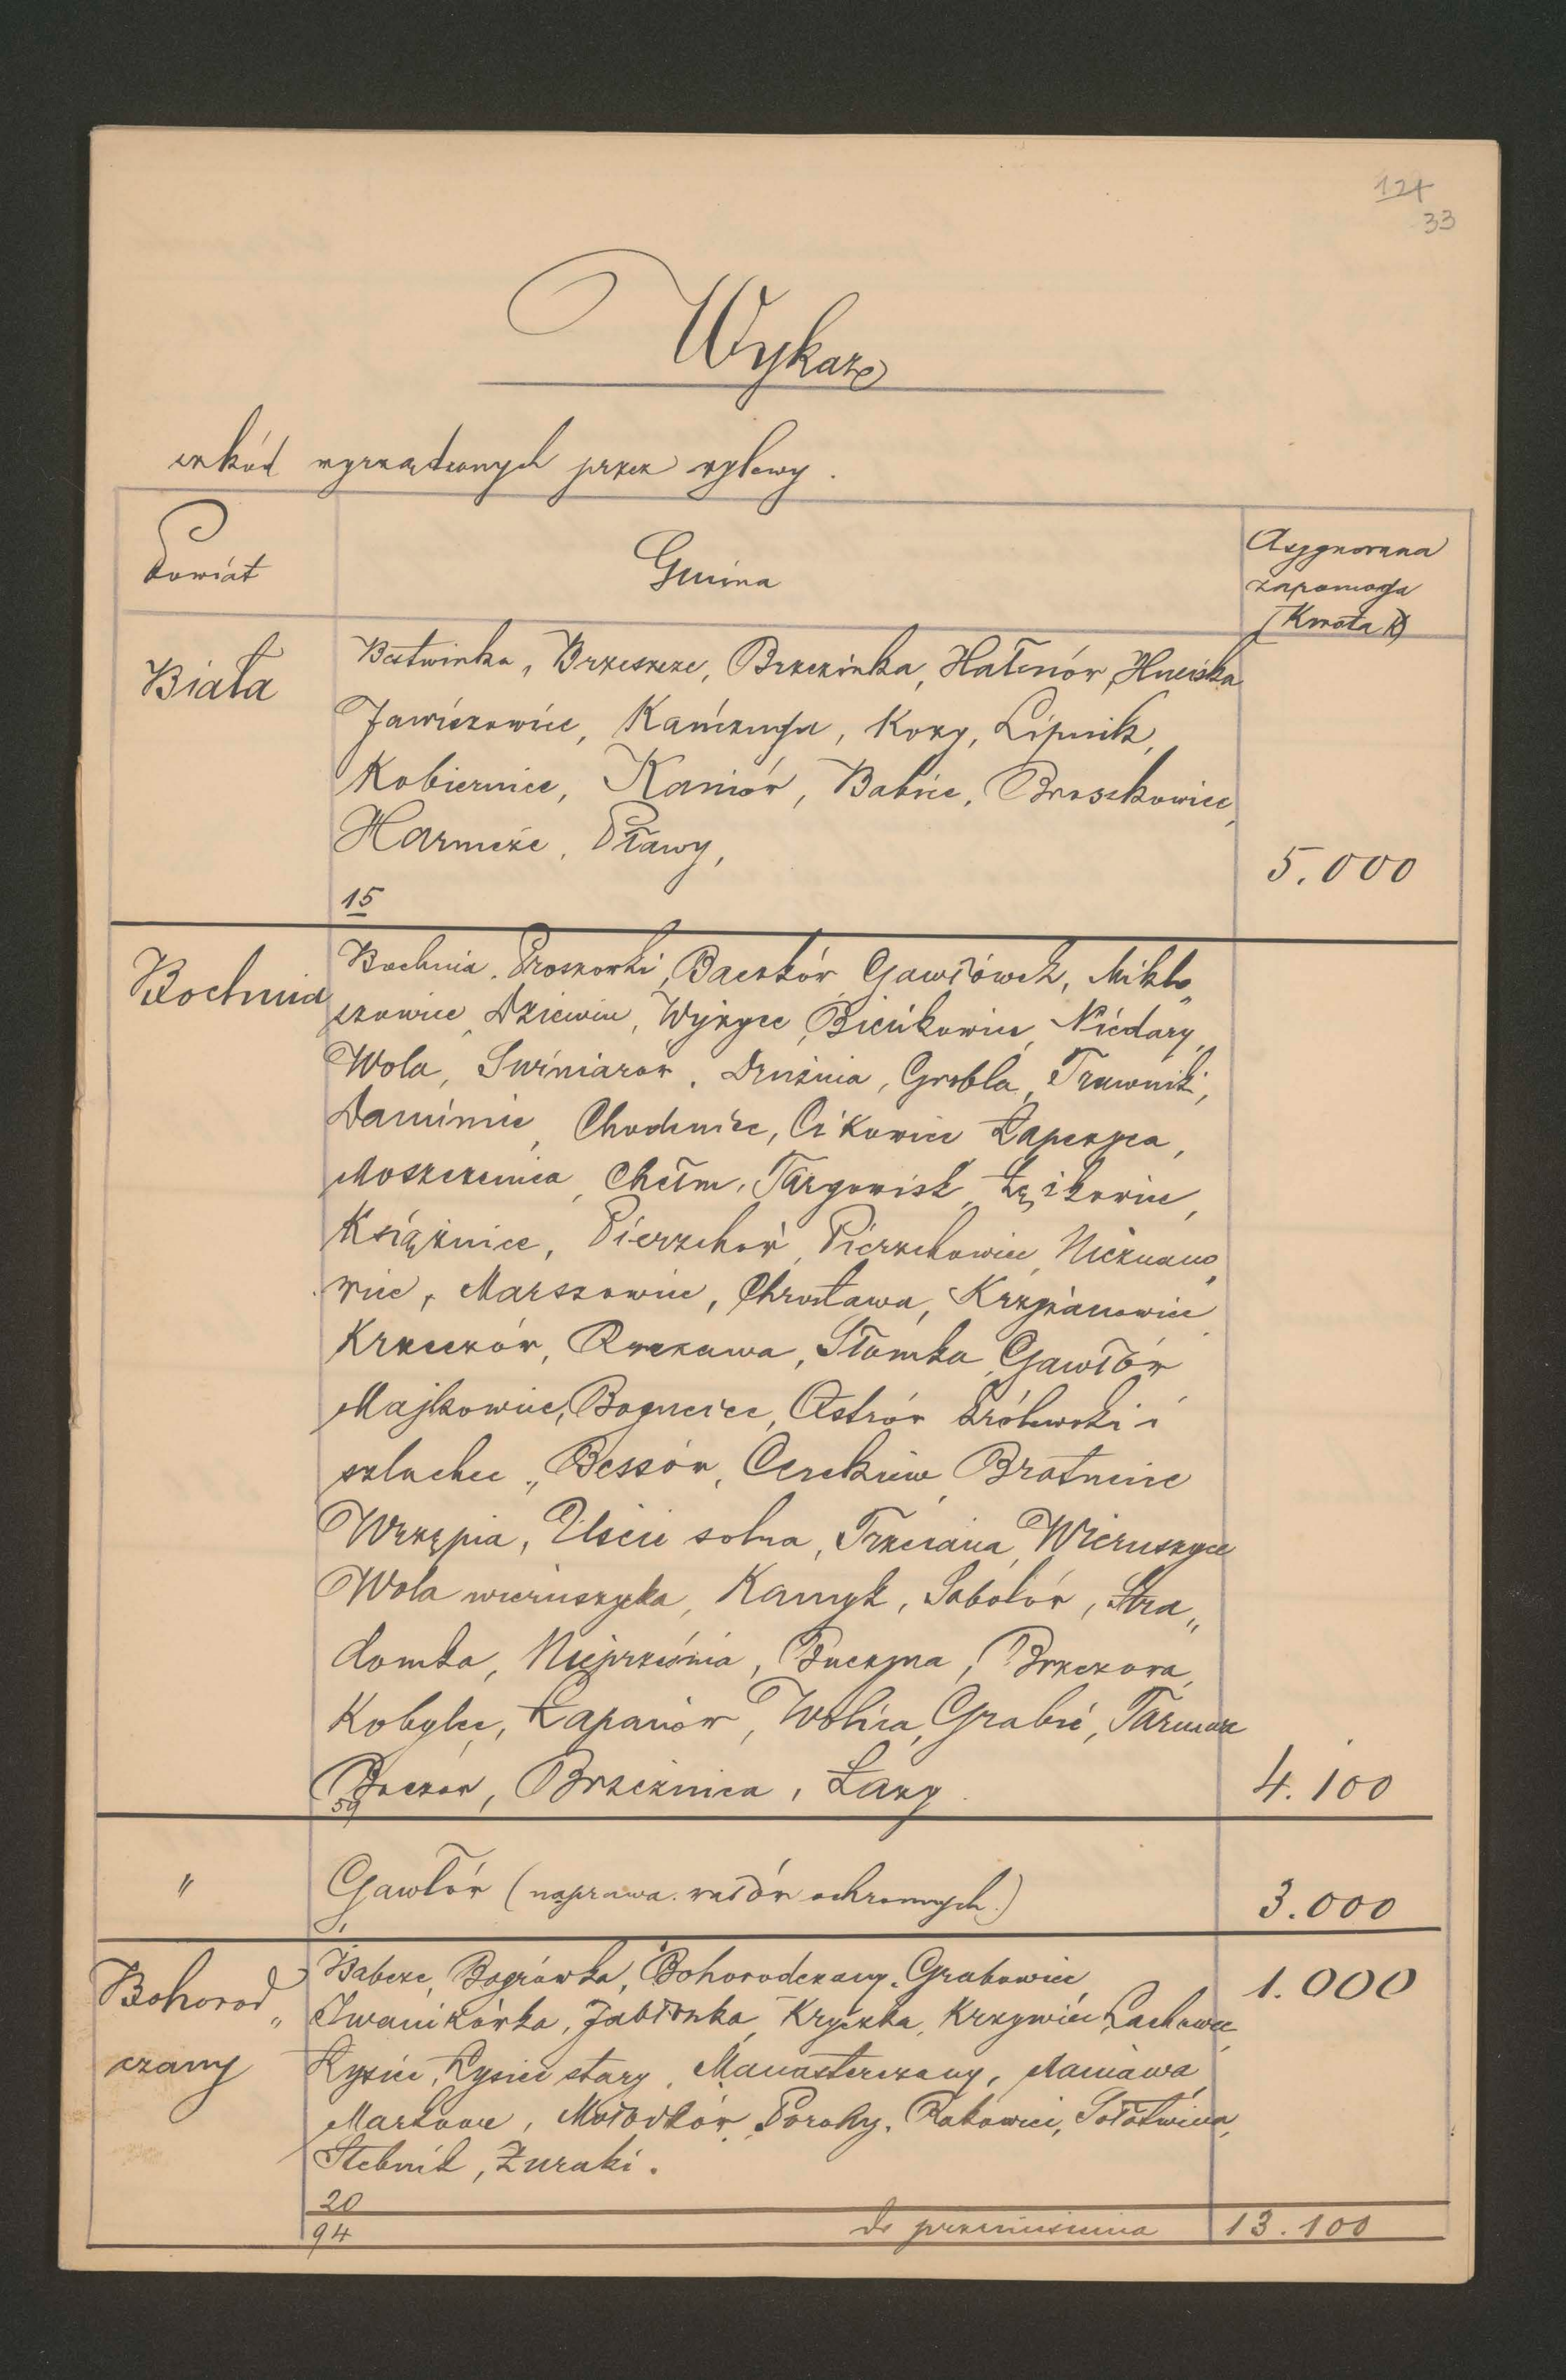 124
33
Wykaz
szkód wyrządzonych przez wylewy.
Powiat
Gmina
Asygnowana
zapomoga
(Kwota K)
Biała
Bestwinka, Brzeszcze, Brzezinka, Hałcnów,
Jawiszowice, Kańczuga, Kozy, Lipnik,
Kobiernice, Kaniów, Babice, Broszkowice,
Harmęże, Pławy,
15
5.000
Bochnia
Bochnia, Proszówki, Baczków, Gawłówek, Miklu„
szowice, Dziewin, Wyżyce, Bieńkowice, Niedary,
Wola, Świniarów, Drwinia, Grobla, Trawniki,
Damienice, Chodenice, Cikowice, Łapczyca,
Moszczenica, Chełm, Targowisk, Łężkowice,
Książnice, Pierzchów, Pierzchowice, Nieznano„
wice, Marszowice, Chrostowa, Krzyżanowice
Krzeczów, Rzezawa, Słomka, Gawłów
Majkowice, Bogucice, Ostrów królewski i
szlachec„, Bessów, Cerekiew, Bratucice
Wrzępia, Uście solne, Trzciana, Wieruszyce
Wola wieruszycka, Kamyk, Sobolów, Stra„
domka, Nieprześnia, Buczyna, Brzezowa,
Kobylec, Łapanów, Wolica, Grabie, Tarnawa
Boczów, Brzeźnica, Łazy.
59
4.100
"
Gawłów (naprawa wałów ochronnych.)
1
3.000
Bohorod„
czany
Babcze, Bogrówka, Bohorodczany, Grabowiec
Iwanikówka, Jabłonka, Kryczka, Krzywiec, Lachowce,
Łysiec, Łysiec stary, Manasterczany, Maniawa,
Markowa, Mołodków, Porohy, Rakowiec, Sołotwina,
Stebnik, Żuraki.
20
1.000
94
do przeniesienia
13.100